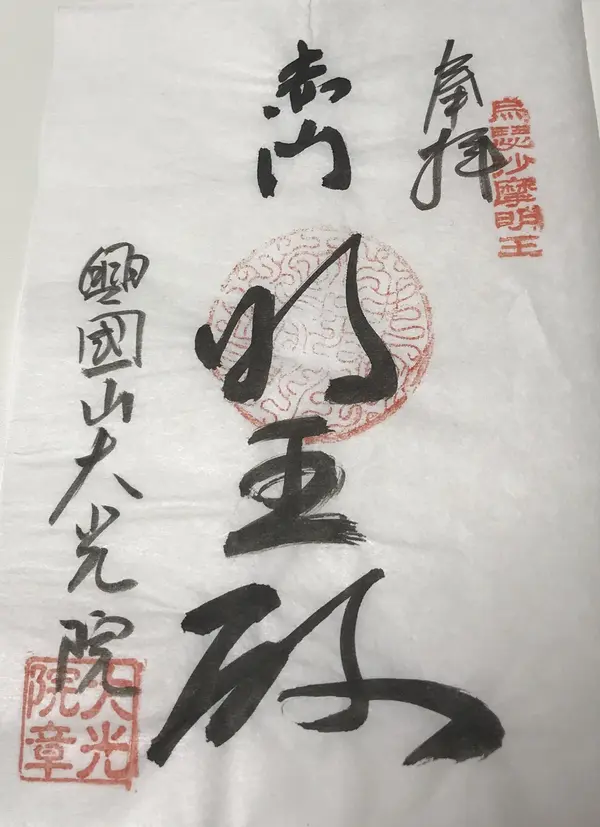 烏瑟沙摩明王
奉拝
赤門
明王殿
興國山大光院
大光
院章